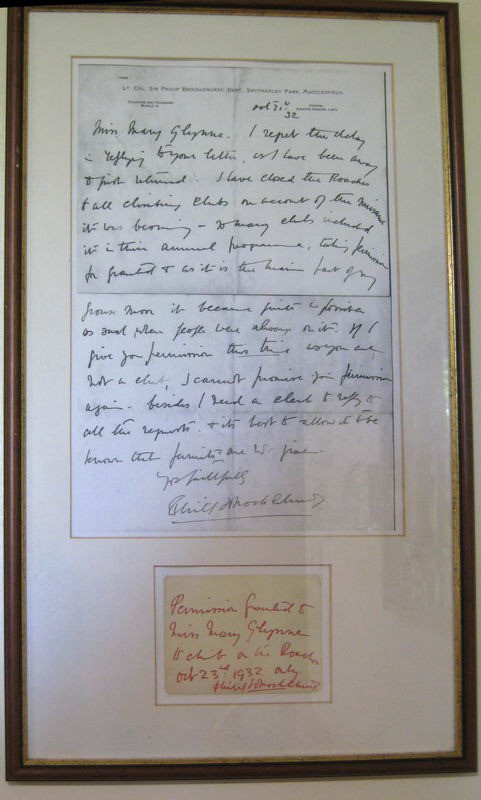 LT. COL. SIR PHILIP BROCKLEHURST, BART. SWYTHAMLEY PARK, MACCLESFIELD.
Oct 21st
32
Miss Mary Glynne. I regret the delay
in replying to your letter, as I have been away
& just returned. I have closed the Roaches
to all climbing clubs on account of the nuisance
it was becoming - so many clubs included
it in their annual programme, taking permission
for granted & as it is the main part of my
grouse moor it became quite
as such, when people were always on it. If I
give you permission this time as you are
not a club, I cannot promise you permission
again. besides I need a clerk to reply to
all the requests & its best to allow it to be
known that permits are not given.
Yrs faithfully
Philip Brocklehurst.
Permission granted to
Miss Mary Glynne
to climb on the Roaches
Oct 23rd 1932 only.
Philip Brocklehurst